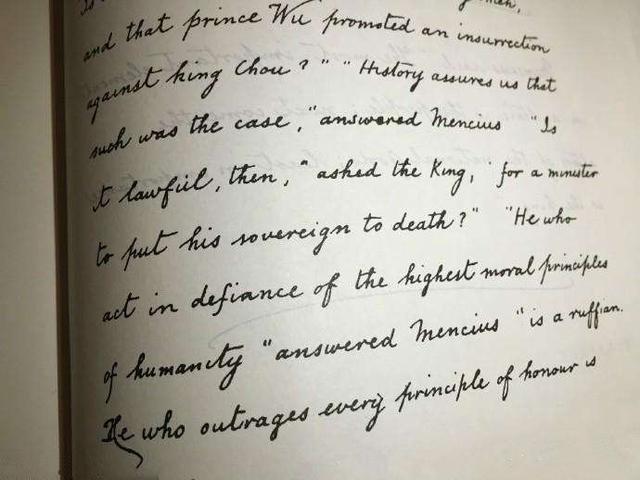 and that prince Wu promoted an insurrection
against king Chou?" "History assures us that
such was the case," answered Mencius "Is
it lawful, then," asked the King, for a minister
to put his sovereign to death?" "He who
act in defiance of the highest moral principles
of humanity "answered Mencius "is a ruffian.
He who outrages every principle of honour is